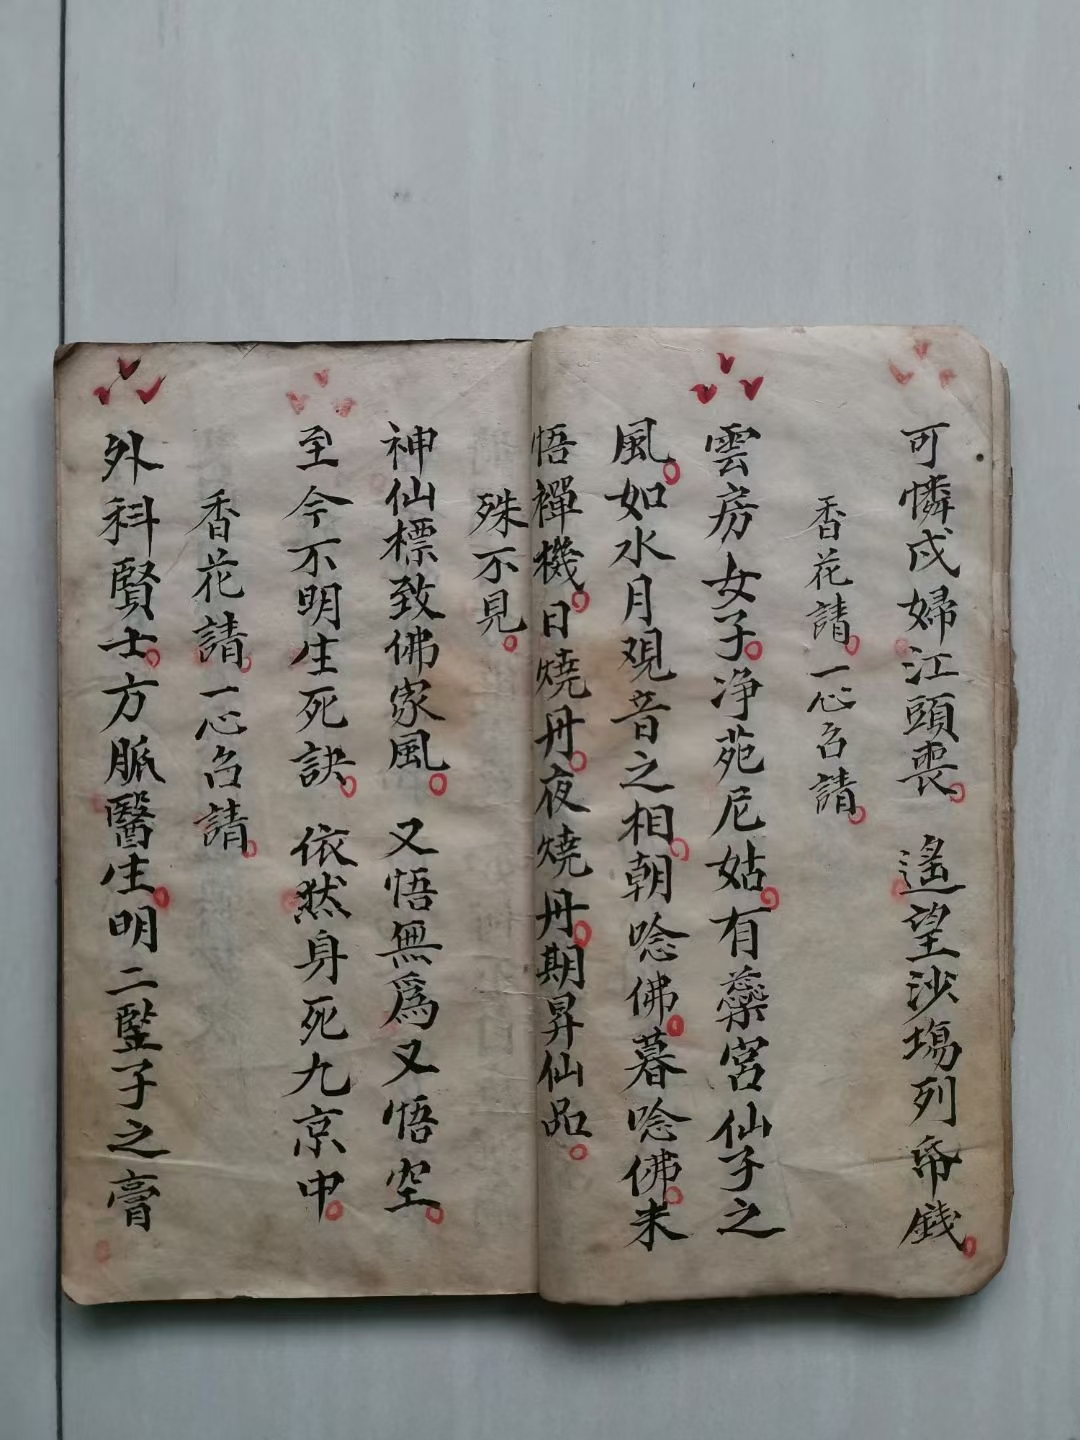 可憐戍婦江頭喪。遙望沙塲列帋錢。
香花請。一心召請。
雲房女子。净苑尼姑。有蘂宮仙子之
風。如水月观音之相。朝唸佛。暮唸佛。未
悟禪機。日燒丹。夜燒丹。期昇仙品。
殊不見。
神仙標致佛家風。又悟無爲又悟空。
至今不明生死訣。依然身死九京中。
香花請。一心召請。
外科賢士。方脈醫生。明二竪子之膏